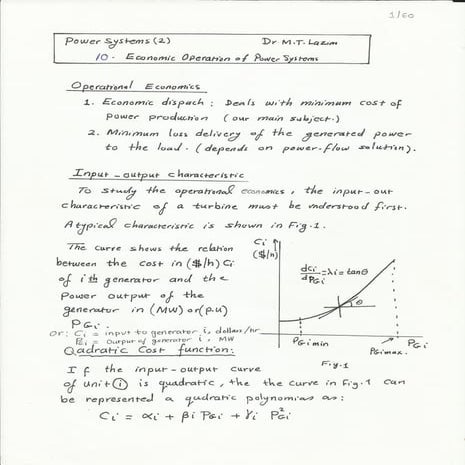 1/60
Power Systems (2) Dr M.T. Lazim
10. Economic Operation of Power Systems
Operational Economics
1. Economic dispach: Deals with minimum cost of
power production (our main subject.)
2. Minimum loss delivery of the generated power
to the load. (depends on power-flow solution).
Input_output characteristic
To study the operational economics, the input-out
characteristic of a turbine must be understood first.
A typical characteristic is shown in Fig.1.
The curve shows the relation
between the cost in ($/h) Ci
of ith generator and the
Power output of the
generator in (MW) or (p.u)
PGi.
or: Ci = input to generator i, dollars/hr
PGi = output of generator i, MW
Ci
($/h)
dCi/dPGi = λi = tanθ
θ
PGi min
PGi max.
PGi
Fig.1
Qadratic Cost function:
If the input-output curve
of unit (i) is quadratic, the the curve in Fig.1 can
be represented a qudratic polynomias as:
Ci = αi + βi PGi + γi P²Gi